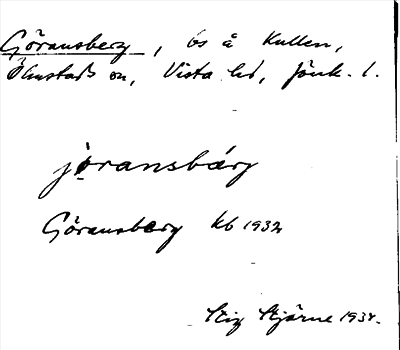 Göransberg, ös å Kullen,
Ölmstads sn, Vista hd, Jönk. l.
jöransbärj
Göransberg kb 1932
Stig Stjärne 1934.